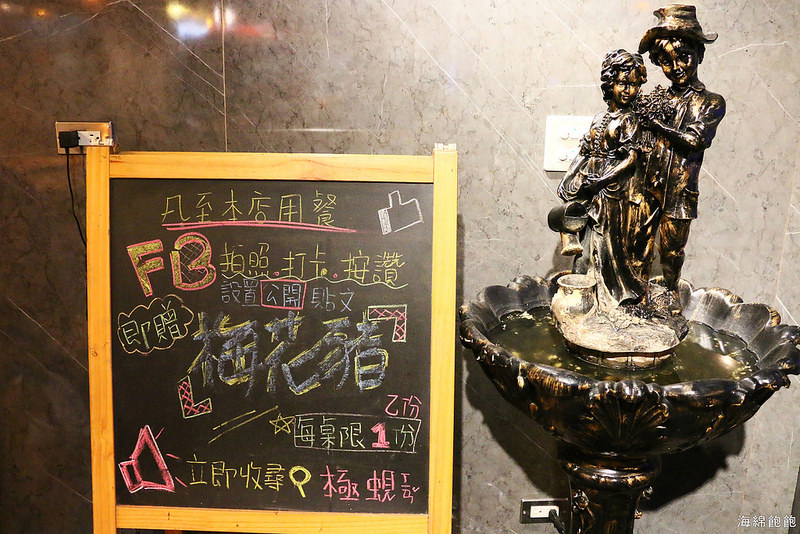 凡至本店用餐
FB拍照.打卡.按讚
設置公開貼文
即贈
梅花豬
乙份
每桌限1份
立即收尋 極蜆
海綿飽飽